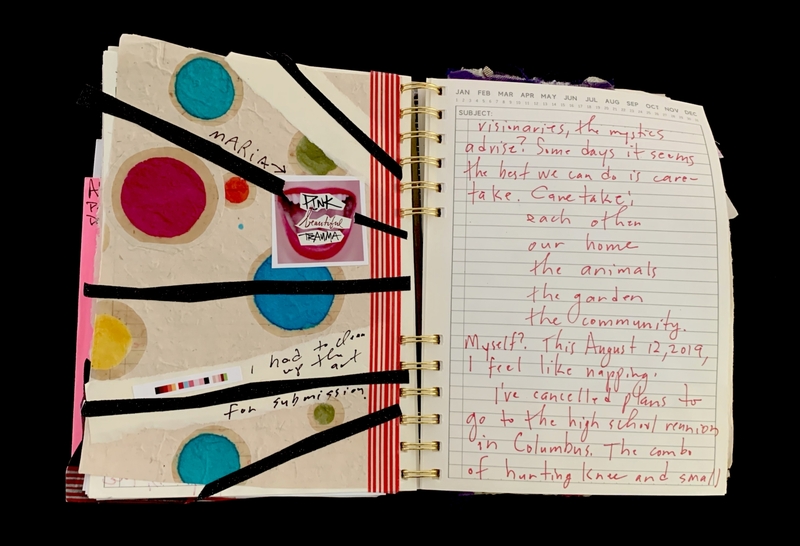 MARIA →
PINK
beautiful
TRAUMA
i had to clean
up the art
for submission.
JAN FEB MAR APR MAY JUN JUL AUG SEP OCT NOV DEC
SUBJECT:
visionaries, the mystics
advise? Some days it seems
the best we can do is care-
take. Caretake:
each other
our home
the animals
the garden
the community.
Myself? This August 12, 2019,
I feel like napping.
I've cancelled plans to
go to the high school reunion
in Columbus. The combo
of hurting knee and small